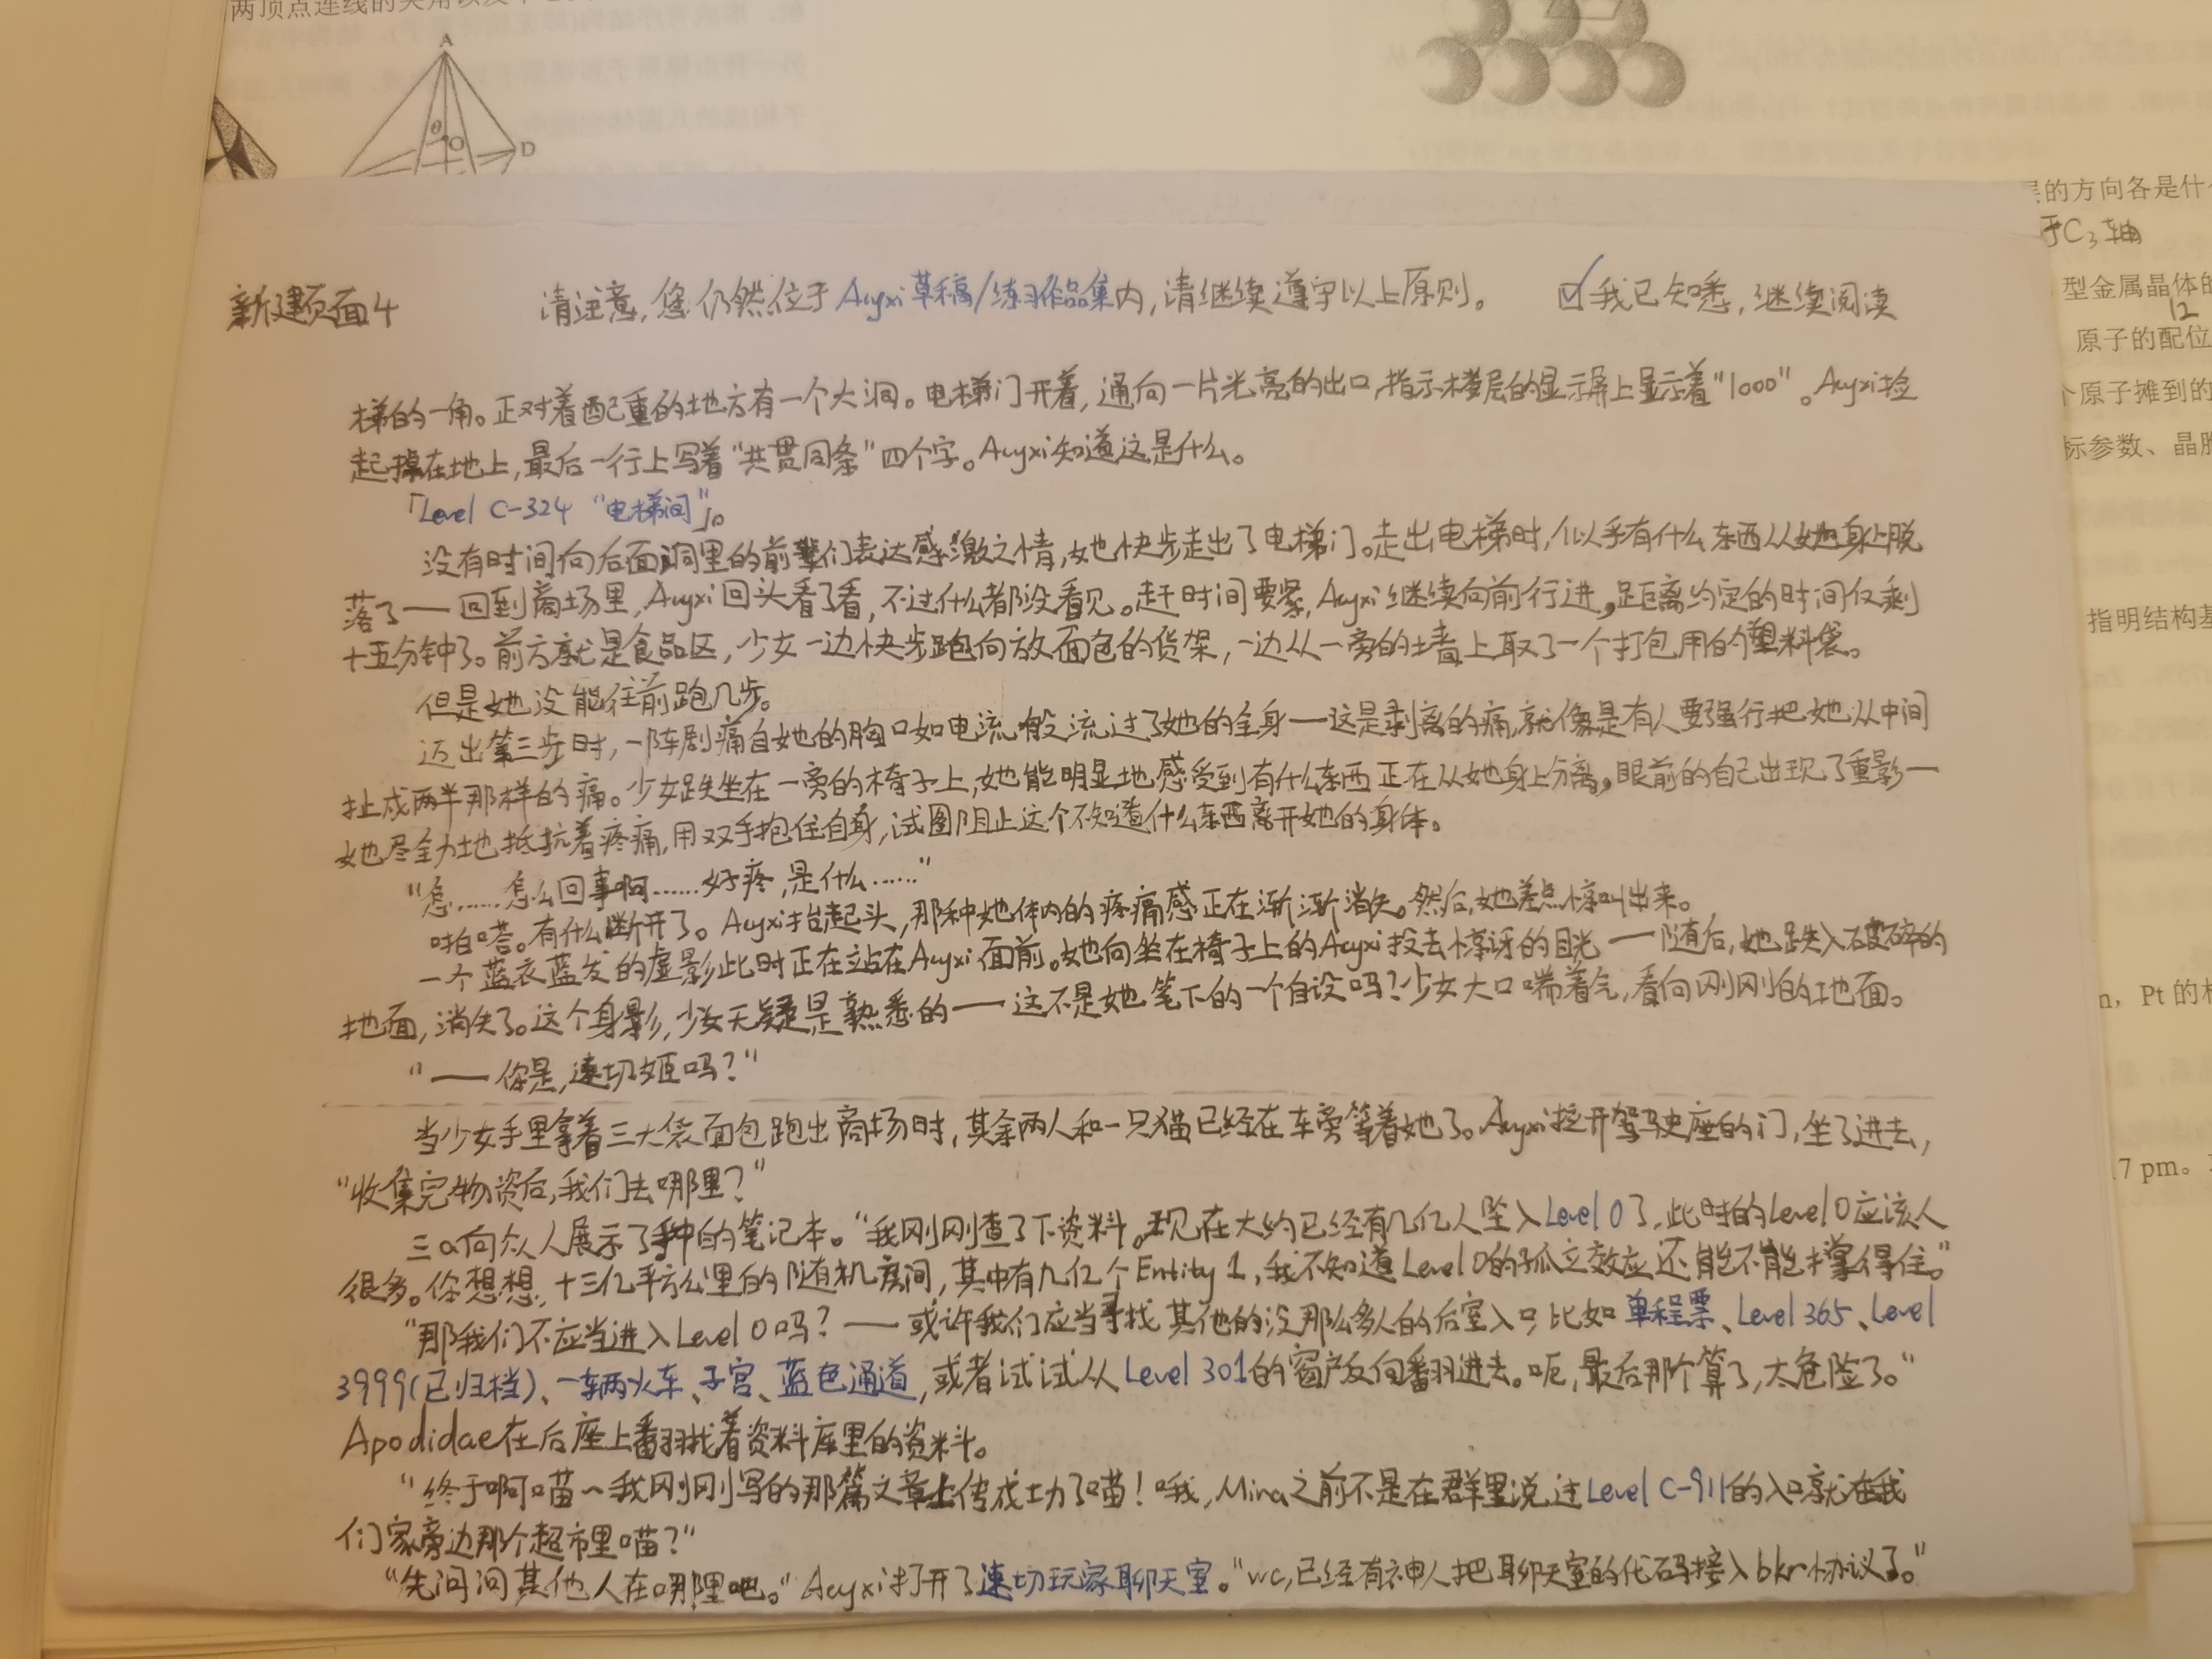 两顶点连线的夹角以及
A
θ
O
D
层的方向各是什
于C₃轴
型金属晶体的
12
原子的配位
个原子摊到的
标参数、晶胞
指明结构基
n，Pt 的
17 pm。
新建页面4 请注意，您仍然位于Acyxi草稿/练习作品集内，请继续遵守以上原则。 ☑我已知悉，继续阅读
梯的一角。正对着配重的地方有一个大洞。电梯门开着，通向一片光亮的出口，指示楼层的显示屏上显示着“1000”。Acyxi捡
起掉在地上，最后一行上写着“共贯同条”四个字。Acyxi知道这是什么。
「Level C-324 “电梯间”」。
没有时间向后面洞里的前辈们表达感激之情，她快步走出了电梯门。走出电梯时，似乎有什么东西从她身上脱
落了——回到商场里，Acyxi回头看了看，不过什么都没看见。赶时间要紧，Acyxi继续向前行进，距离约定的时间仅剩
十五分钟了。前方就是食品区，少女一边快步跑向放面包的货架，一边从一旁的墙上取了一个打包用的塑料袋。
但是她没能往前跑几步。
迈出第三步时，一阵剧痛自她的胸口如电流般流过了她的全身—这是剥离的痛，就像是有人要强行把她从中间
扯成两半那样的痛。少女跌坐在一旁的椅子上，她能明显地感受到有什么东西正在从她身上分离，眼前的自己出现了重影—
她尽全力地抵抗着疼痛，用双手抱住自身，试图阻止这个不知道什么东西离开她的身体。
“怎……怎么回事啊……好疼，是什么……”
啪嗒。有什么断开了。Acyxi抬起头，那种她体内的疼痛感正在渐渐消失。然后，她差点惊叫出来。
一个蓝衣蓝发的虚影此时正在站在Acyxi面前。她向坐在椅子上的Acyxi投去惊讶的目光——随后，她跌入破碎的
地面，消失了。这个身影，少女无疑是熟悉的——这不是她笔下的一个自设吗？少女大口喘着气，看向刚刚的地面。
“——你是，速切姬吗？”
当少女手里拿着三大袋面包跑出商场时，其余两人和一只猫已经在车旁等着她了。Acyxi拉开驾驶座的门，坐了进去，
“收集完物资后，我们去哪里？”
三α向众人展示了手中的笔记本。“我刚刚查了下资料。现在大约已经有几亿人坠入Level 0了，此时的Level 0应该人
很多。你想想，十三亿平方公里的随机房间，其中有几亿个Entity 1，我不知道Level 0的孤立效应还能不能撑得住。”
“那我们不应当进入Level 0吗？——或许我们应当寻找其他的没那么多人的后室入口，比如单程票、Level 365、Level
3999(已归档)、一辆火车、子宫、蓝色通道，或者试试从Level 301的窗户反向翻进去。呃，最后那个算了，太危险了。”
Apodidae在后座上翻找着资料库里的资料。
“终于啊喵～我刚刚写的那篇文章上传成功了喵！哦，Mina之前不是在群里说过Level C-911的入口就在我
们家旁边那个超市里喵？”
“先问问其他人在哪里吧。”Acyxi打开了速切玩家聊天室。“wc，已经有神人把聊天室的代码接入bkr协议了。”